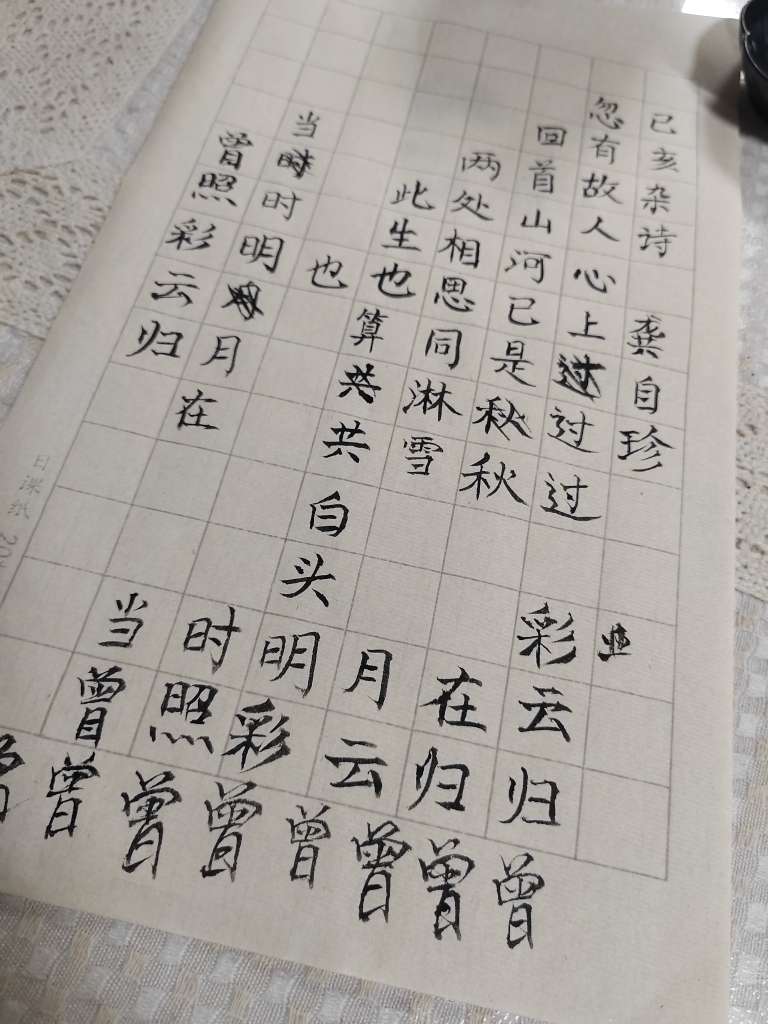 已亥杂诗 龚自珍
忽有故人心上过过过
回首山河已是秋秋
两处相思同淋雪
此生也算共共白头
也
当时时明月月在
曾照彩云归
业
彩云归
当时明月在
曾照彩云归
曾曾曾曾曾曾曾
日课纸